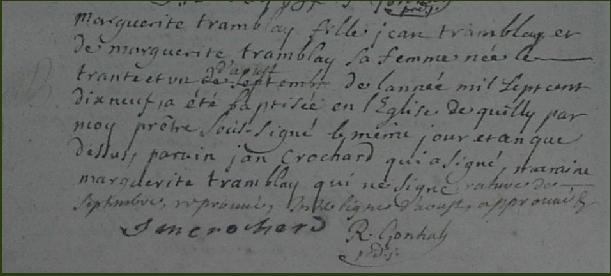 marguerite tramblay fille jean tramblay et
de marguerite tramblay sa femme née le
trante et un de septembre d'aoust de lannée mil sept cent
dix neuf, a été baptisée en l'Eglise de quilly par
moy prêtre sous-signé le même jour et an que
dessus, parain jan Crochard qui a signé maraine
marguerite tramblay qui ne signe rature de
septembre, reprouvée, interligne d'aoust, approuvé
Jan crochard R. Gonhah